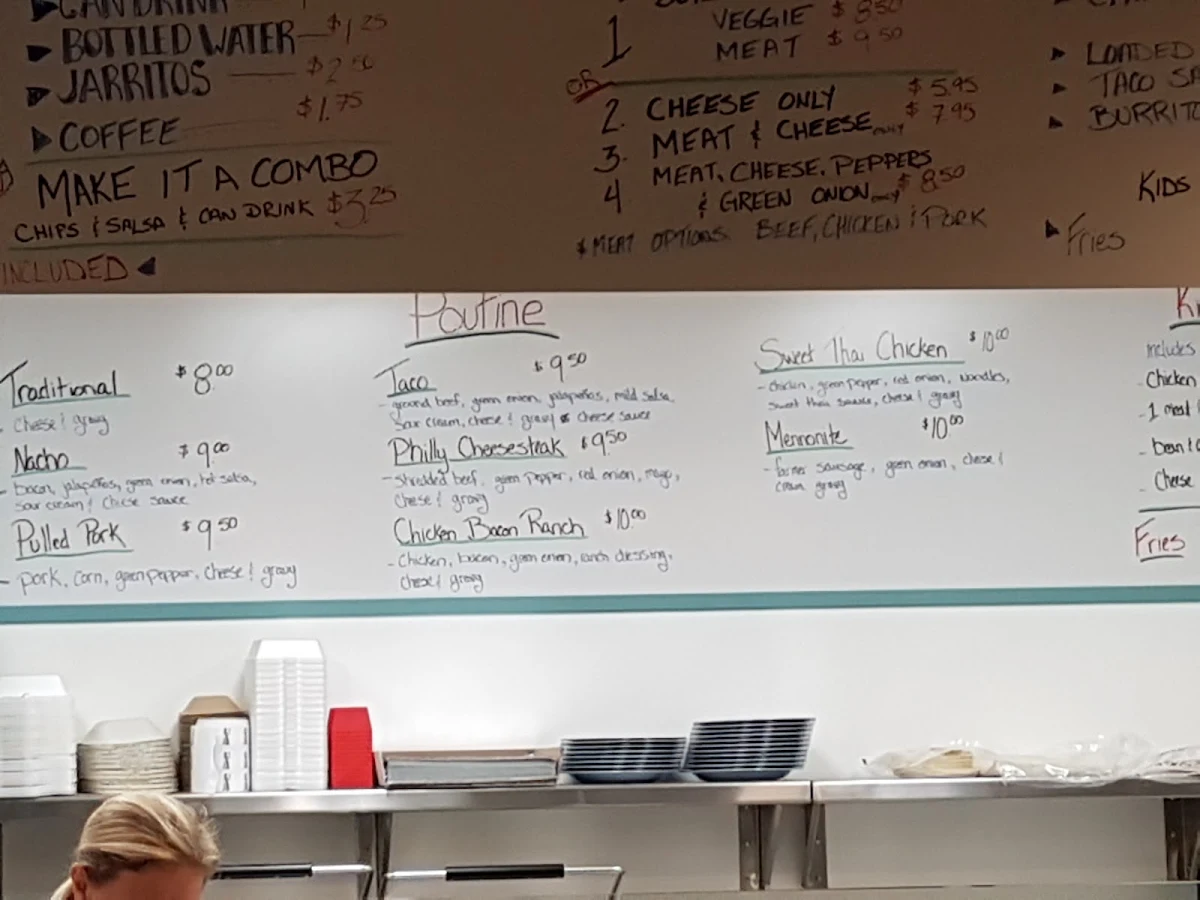 CAN DRINK
BOTTLED WATER $1.25
JARRITOS $2.50
COFFEE $1.75
MAKE IT A COMBO
CHIPS & SALSA & CAN DRINK $3.25
INCLUDED
1 VEGGIE $8.50
MEAT $9.50
OR
2. CHEESE ONLY $5.95
3. MEAT & CHEESE ONLY $7.95
4 MEAT, CHEESE, PEPPERS
& GREEN ONION ONLY $8.50
MEAT OPTIONS: BEEF, CHICKEN & PORK
LOADED
TACO SA
BURRITO
KIDS
Fries
Poutine
Traditional $8.00
- Cheese & gravy
Nacho $9.00
- bacon, jalapeños, green onion, hot salsa,
sour cream & cheese sauce
Pulled Pork $9.50
- pork, corn, green pepper, cheese & gravy
Taco $9.50
- ground beef, green onion, jalapeños, mild salsa,
sour cream, cheese & gravy & cheese sauce
Philly Cheesesteak $9.50
- shredded beef, green pepper, red onion, mayo,
cheese & gravy
Chicken Bacon Ranch $10.00
- Chicken, bacon, green onion, ranch dressing,
cheese & gravy
Sweet Thai Chicken $10.00
- chicken, green pepper, red onion, noodles,
sweet thai sauce, cheese & gravy
Mennonite $10.00
- farmer sausage, green onion, cheese &
cream gravy
Ki
includes
- Chicken
- 1 meat
- bean &
- Cheese
Fries